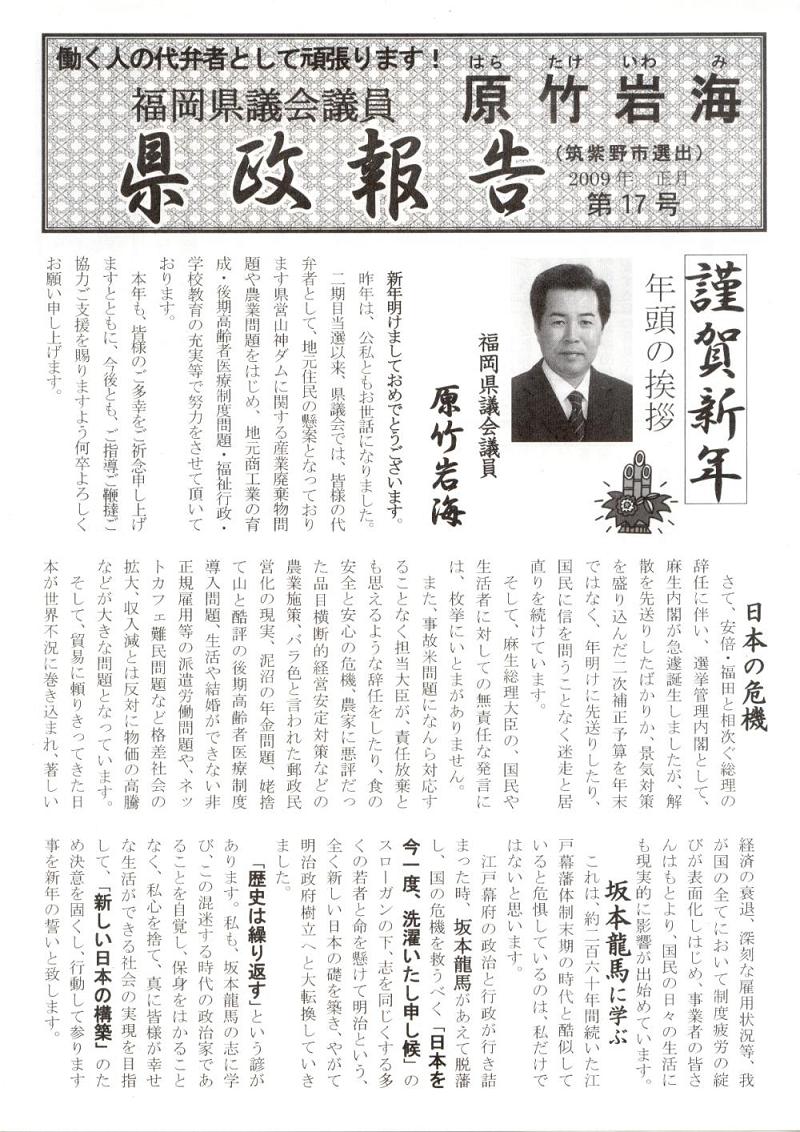 働く人の代弁者として頑張ります！
福岡県議会議員
はら たけ いわ み
原竹岩海
県政報告
（筑紫野市選出）
2009年 正月
第17号
謹賀新年
年頭の挨拶
福岡県議会議員
原竹岩海
新年明けましておめでとうございます。
昨年は、公私ともお世話になりました。
二期目当選以来、県議会では、皆様の代
弁者として、地元住民の懸案となっており
ます県営山神ダムに関する産業廃棄物問
題や農業問題をはじめ、地元商工業の育
成・後期高齢者医療制度問題・福祉行政・
学校教育の充実等で努力をさせて頂いて
おります。
本年も、皆様のご多幸をご祈念申し上げ
ますとともに、今後とも、ご指導ご鞭撻ご
協力ご支援を賜りますよう何卒よろしく
お願い申し上げます。
日本の危機
さて、安倍・福田と相次ぐ総理の
辞任に伴い、選挙管理内閣として、
麻生内閣が急遽誕生しましたが、解
散を先送りしたばかりか、景気対策
を盛り込んだ二次補正予算を年末
ではなく、年明けに先送りしたり、
国民に信を問うことなく迷走と居
直りを続けています。
そして、麻生総理大臣の、国民や
生活者に対しての無責任な発言に
は、枚挙にいとまがありません。
また、事故米問題になんら対応す
ることなく担当大臣が、責任放棄と
も思えるような辞任をしたり、食の
安全と安心の危機、農家に悪評だっ
た品目横断的経営安定対策などの
農業施策、バラ色と言われた郵政民
営化の現実、泥沼の年金問題、姥捨
て山と酷評の後期高齢者医療制度
導入問題、生活や結婚ができない非
正規雇用等の派遣労働問題や、ネッ
トカフェ難民問題など格差社会の
拡大、収入減とは反対に物価の高騰
などが大きな問題となっています。
そして、貿易に頼りきってきた日
本が世界不況に巻き込まれ、著しい
経済の衰退、深刻な雇用状況等、我
が国の全てにおいて制度疲労の綻
びが表面化しはじめ、事業者の皆さ
んはもとより、国民の日々の生活に
も現実的に影響が出始めています。
坂本龍馬に学ぶ
これは、約二百六十年間続いた江
戸幕藩体制末期の時代と酷似して
いると危惧しているのは、私だけで
はないと思います。
江戸幕府の政治と行政が行き詰
まった時、坂本龍馬があえて脱藩
し、国の危機を救うべく「日本を
今一度、洗濯いたし申し候」の
スローガンの下、志を同じくする多
くの若者と命を懸けて明治という、
全く新しい日本の礎を築き、やがて
明治政府樹立へと大転換していき
ました。
「歴史は繰り返す」という諺が
あります。私も、坂本龍馬の志に学
び、この混迷する時代の政治家であ
ることを自覚し、保身をはかること
なく、私心を捨て、真に皆様が幸せ
な生活ができる社会の実現を目指
して、「新しい日本の構築」のた
め決意を固くし、行動して参ります
事を新年の誓いと致します。